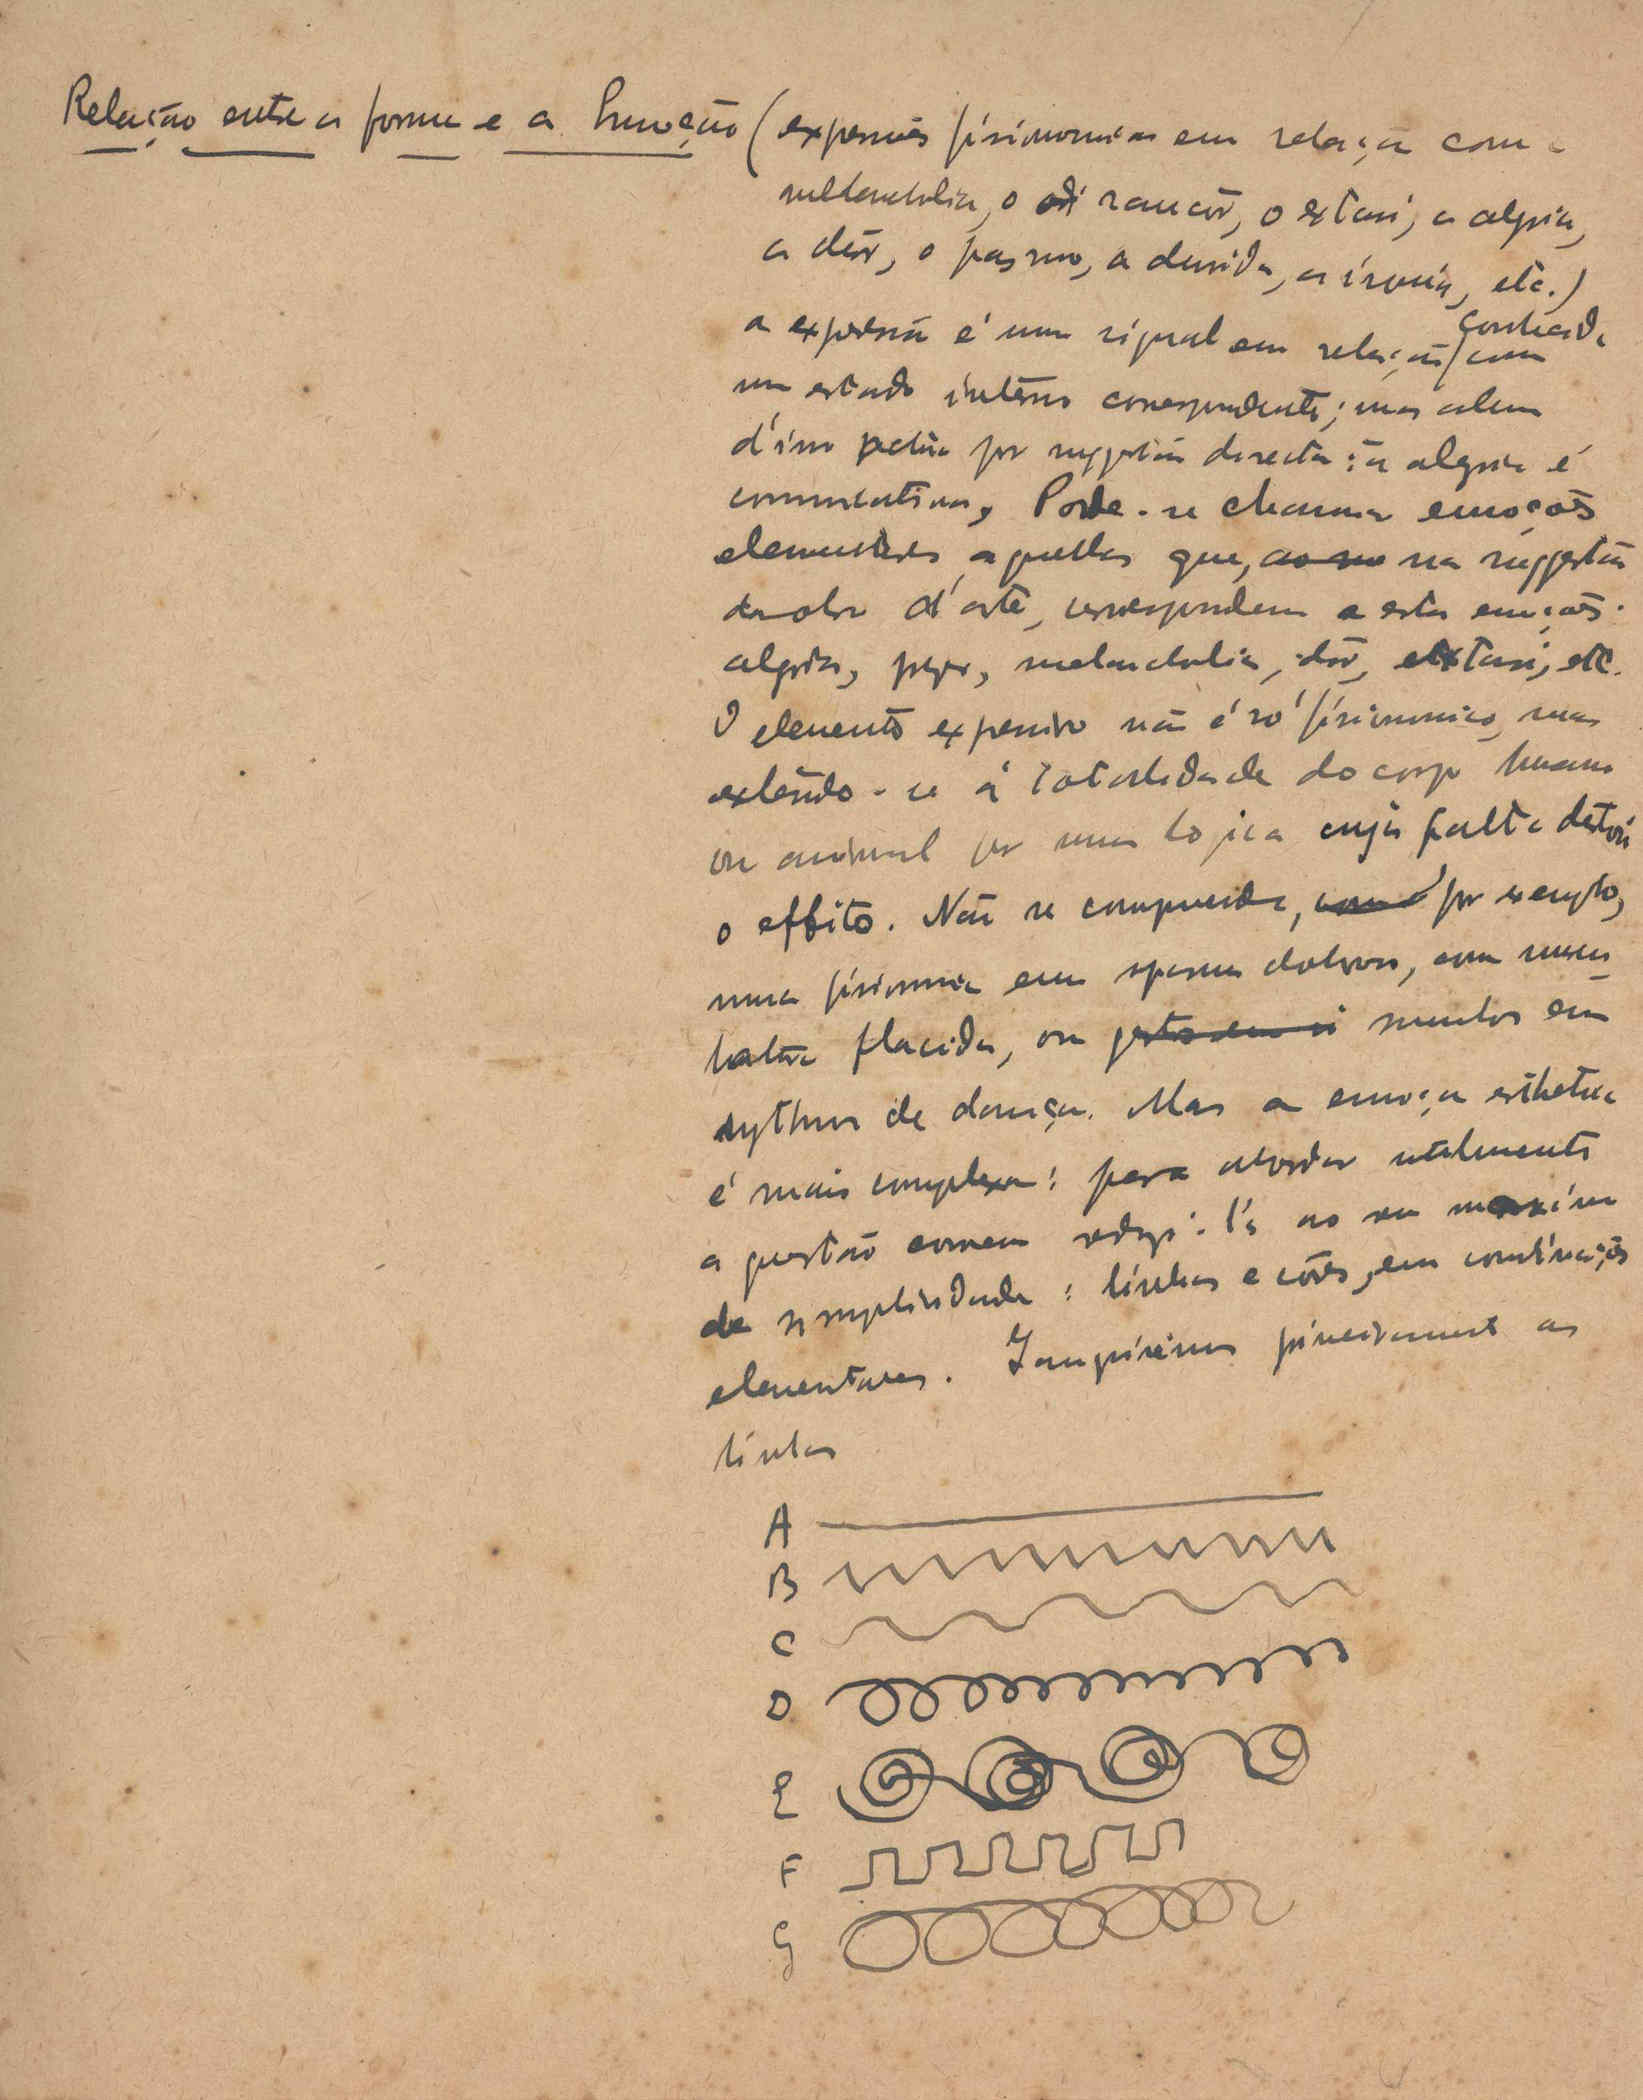 Relação entre a forma e a Emoção (expressões fisionomicas em relação com a
melancholia, o rancôr, o extasi, a alegria,
a dôr, o pasmo, a duvida, a ironia, etc.)
conhecida
a expressão é um signal em relação com
um estado intêrno correspondente; mas alem
d'isso actúa por suggestão directa: a alegria é
communicativa, Pode-se chamar emoções
elementares aquellas que, na suggestão
da obra d'arte, correspondem a estas emoções:
alegria, pezar, melancholia, dôr, extasi, etc.
O elemento expressivo não é só fisionomico, mas
extende-se á totalidade do corpo humano
ou animal por uma logica cuja falta destroi
o effeito. Não se comprehende, por exemplo,
uma fisionomia em espasmo doloroso, com muscu-
latura flacida, ou membros em
rythmo de dança. Mas a emoção esthetica
é mais complexa: para abordar utilmente
a questão convem redigi-l'a ao seu maximo
de simplicidade: linhas e côres, em combinações
elementares. primeiramente as
linhas
A
B
C
D
E
F
G